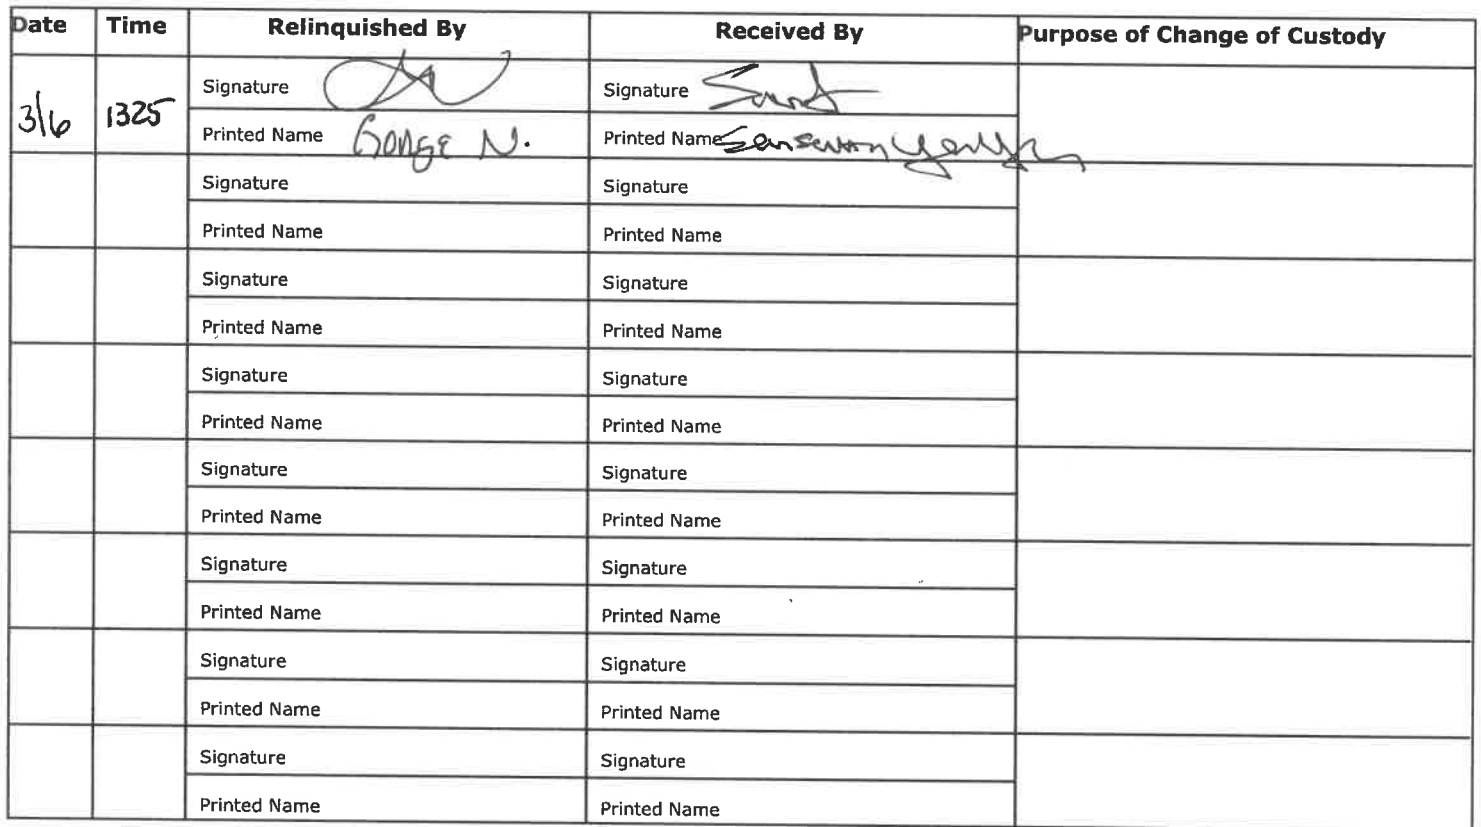 Date Time Relinquished By Received By Purpose of Change of Custody
Signature Signature
3/6 1325
Printed Name N. Printed Name
Signature Signature
Printed Name Printed Name
Signature Signature
Printed Name Printed Name
Signature Signature
Printed Name Printed Name
Signature Signature
Printed Name Printed Name
Signature Signature
Printed Name Printed Name
Signature Signature
Printed Name Printed Name
Signature Signature
Printed Name Printed Name